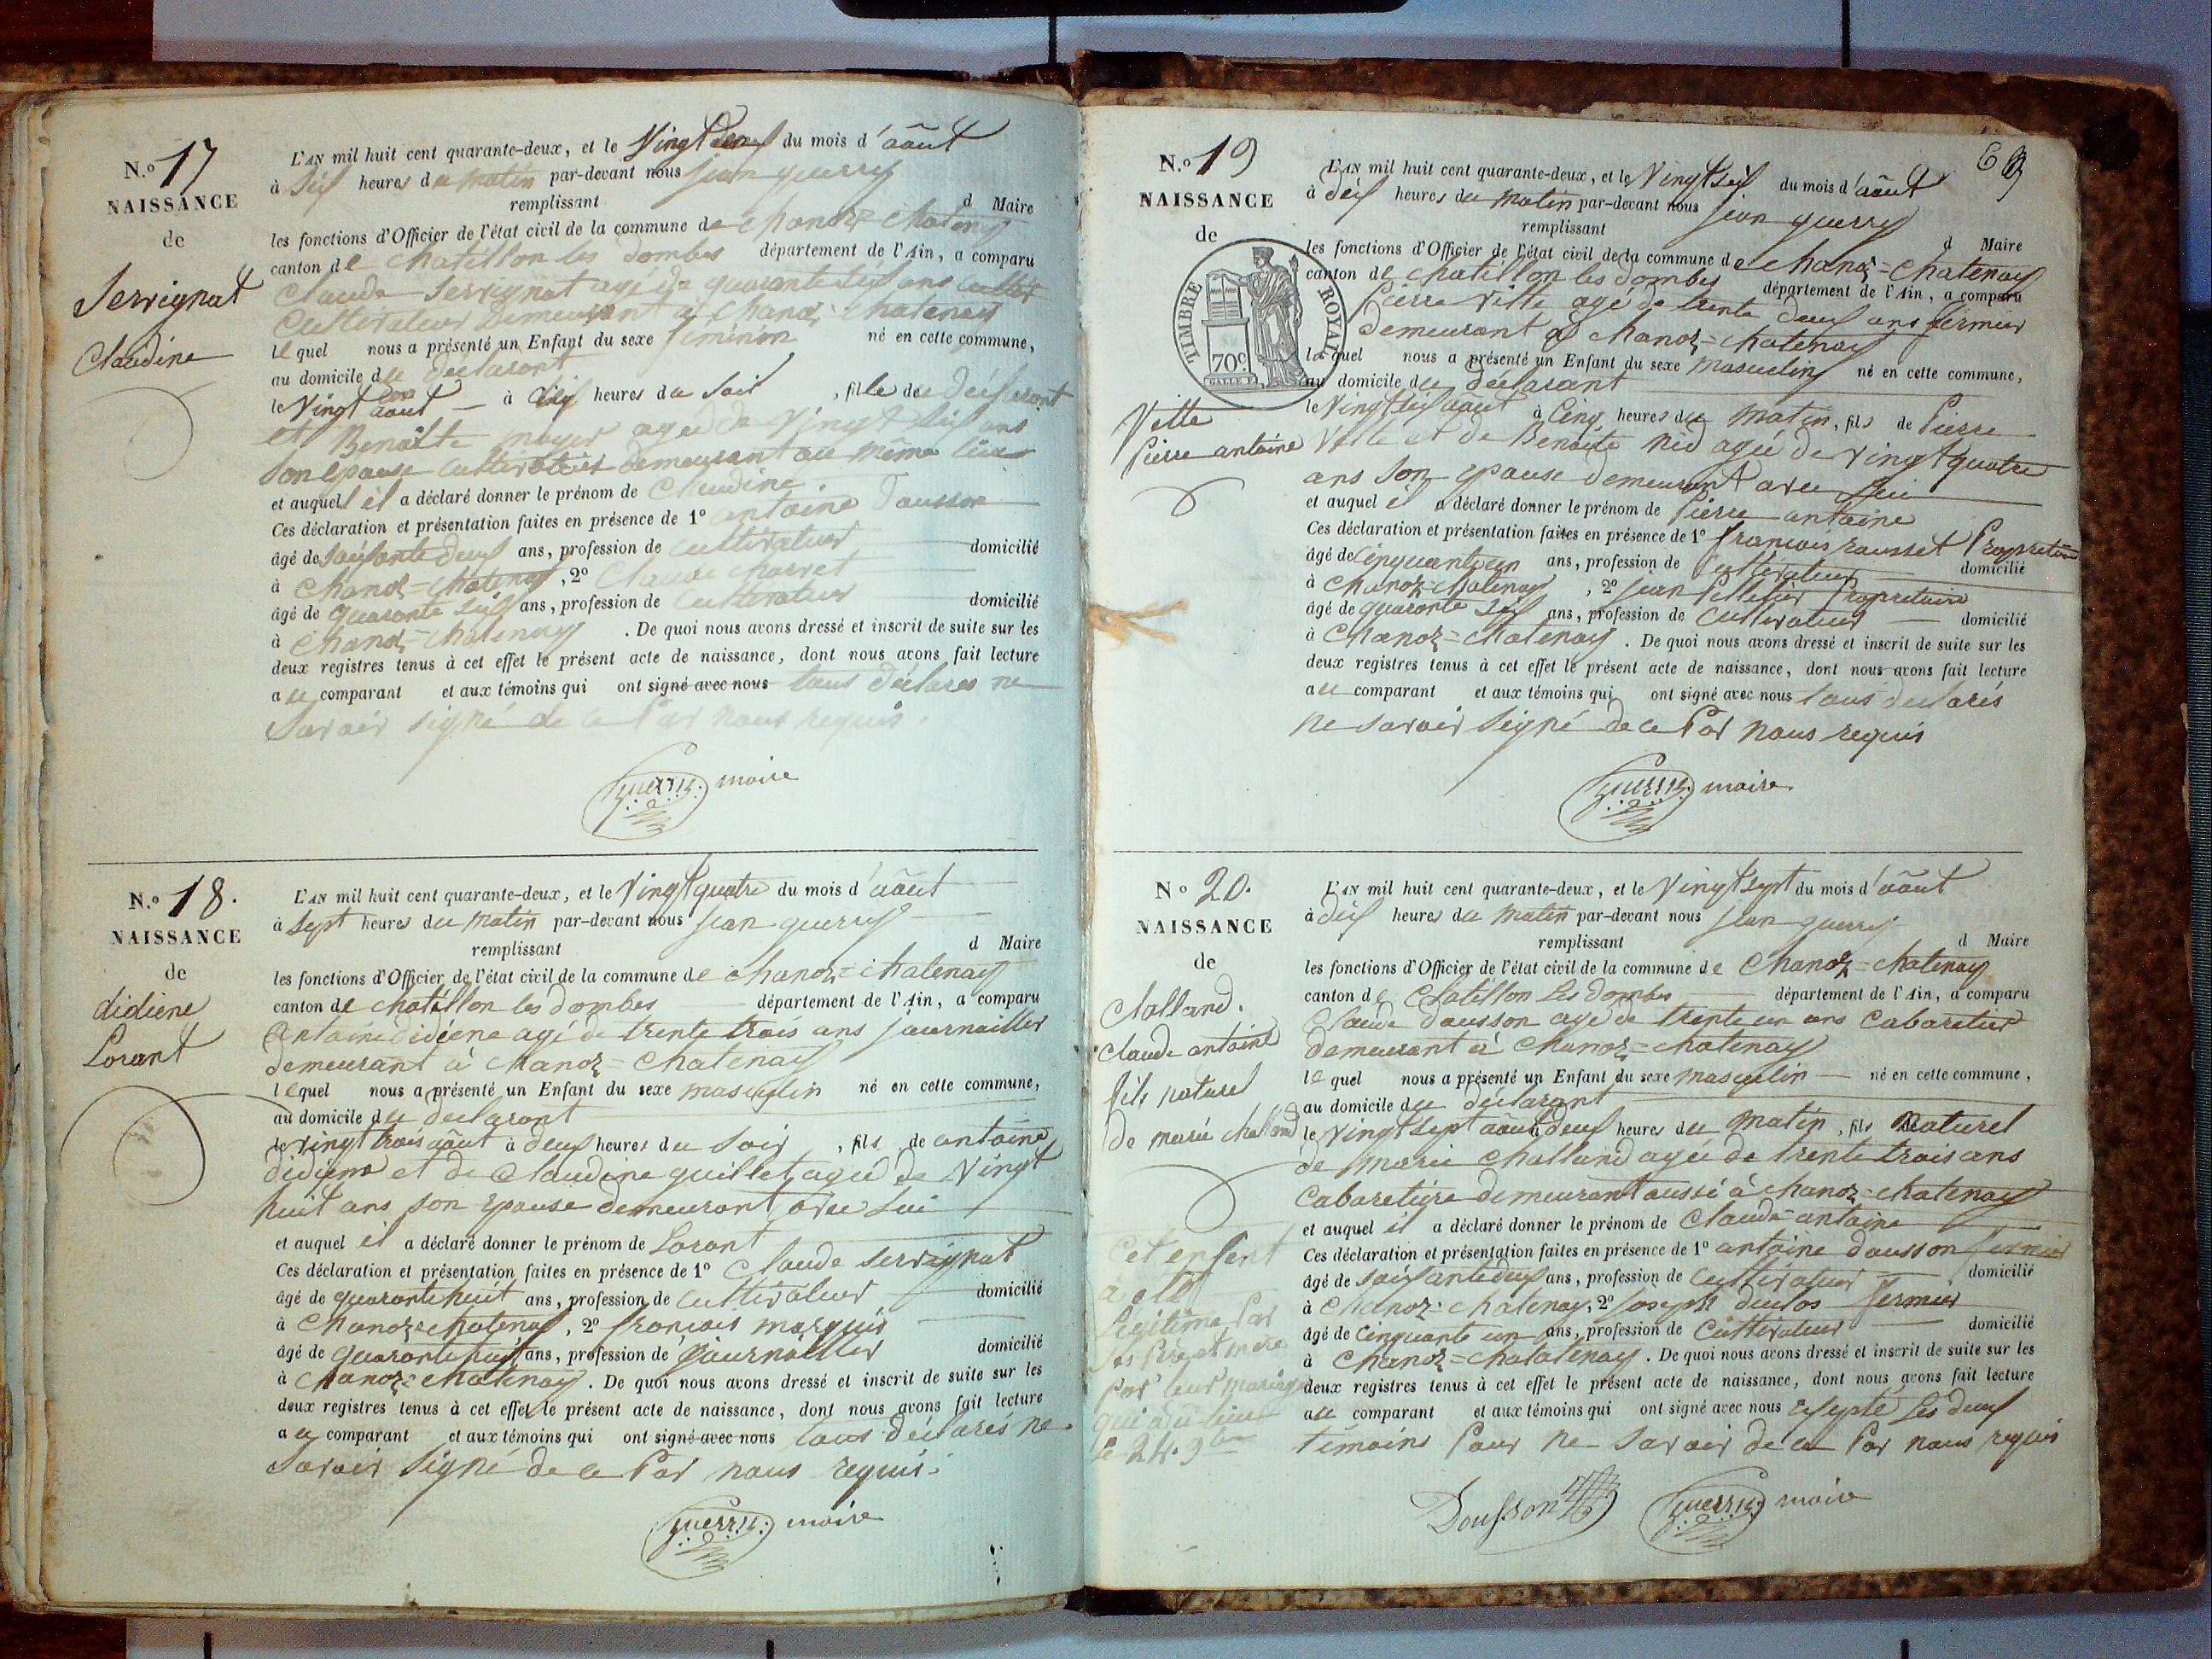 N.o 17
NAISSANCE
de
Servignat
Claudine
L'AN mil huit cent quarante-deux, et le Vingt deux du mois d'août
à Six heures du matin par-devant nous jean guerry
remplissant d Maire
les fonctions d'Officier de l'état civil de la commune de chanoz=chatenay
canton de chatillon les dombes département de l'Ain, a comparu
Claude Servignat agé de quarante six ans
Cultivateur Demeurant à Chanoz chatenay
lequel nous a présenté un Enfant du sexe féminin né en cette commune,
au domicile du declarant
le Vingt août à heures du Soir, fille du déclarant
et Benoîte moyer agée de Vingt six ans
Son epouse Demeurant au même lieu
et auquel il a déclaré donner le prénom de Claudine.
Ces déclaration et présentation faites en présence de 1o antoine Dausson
âgé de Soixante deux ans, profession de Cultivateur domicilié
à Chanoz=Chatenay, 2o Claude charvet
âgé de quarante six ans, profession de Cultivateur domicilié
à Chanoz=chatenay. De quoi nous avons dressé et inscrit de suite sur les
deux registres tenus à cet effet le présent acte de naissance, dont nous avons fait lecture
au comparant et aux témoins qui ont signé avec nous tous déclarés ne
Savoir signé de ce Par nous requis.
guerry maire
N.o 18.
NAISSANCE
de
didiène
Lorant
L'AN mil huit cent quarante-deux, et le Vingt quatre du mois d'août
à Sept heures du Matin par-devant nous jean guerry
remplissant d Maire
les fonctions d'Officier de l'état civil de la commune de chanoz=chatenay
canton de chatillon les dombes département de l'Ain, a comparu
Antoine didiène agé de trente trois ans journaillier
demeurant à Chanoz=Chatenay
lequel nous a présenté un Enfant du sexe masculin né en cette commune,
au domicile du declarant
le vingt trois août à deux heures du Soir, fils de antoine
didiène et de Claudine guillet agée de Vingt
huit ans son epouse demeurant avec Lui
et auquel il a déclaré donner le prénom de Lorant
Ces déclaration et présentation faites en présence de 1o Claude servignat
âgé de quarante huit ans, profession de Cultivateur domicilié
à Chanoz=chatenay, 2o francois marquis
âgé de quarante huit ans, profession de journaillier domicilié
à Chanoz=chatenay. De quoi nous avons dressé et inscrit de suite sur les
deux registres tenus à cet effet le présent acte de naissance, dont nous avons fait lecture
au comparant et aux témoins qui ont signé avec nous tous déclarés ne
Savoir Signé de ce Par nous requis.
guerry maire
N.o 19
NAISSANCE
de
TIMBRE ROYAL
70c
Vette
Pierre antoine
L'AN mil huit cent quarante-deux, et le Vingt six du mois d'août
à dix heures du matin par-devant nous jean guerry
remplissant d Maire
les fonctions d'Officier de l'état civil de la commune de Chanoz=Chatenay
canton de chatillon les dombes département de l'Ain, a comparu
Pierre Vette agé de trente deux ans fermier
Demeurant à Chanoz=chatenay
lequel nous a présenté un Enfant du sexe masculin né en cette commune,
au domicile du déclarant
le Vingt six août à Cinq heures du matin, fils de Pierre
Vette et de Benoite nid agée de Vingt quatre
ans Son epouse demeurant avec lui
et auquel il a déclaré donner le prénom de Pierre antoine
Ces déclaration et présentation faites en présence de 1o francois rousset Propriétaire
âgé de Cinquante un ans, profession de Cultivateur domicilié
à Chanoz=chatenay, 2o jean Pelletier Propriétaire
âgé de quarante six ans, profession de Cultivateur domicilié
à Chanoz=Chatenay. De quoi nous avons dressé et inscrit de suite sur les
deux registres tenus à cet effet le présent acte de naissance, dont nous avons fait lecture
au comparant et aux témoins qui ont signé avec nous tous declarés
ne Savoir Signé de ce Par nous requis
guerry maire.
No 20.
NAISSANCE
de
Challand.
Claude antoine
fils naturel
De marie challand
L'AN mil huit cent quarante-deux, et le Vingt sept du mois d'août
à dix heures du Matin par-devant nous jean guerry
remplissant d Maire
les fonctions d'Officier de l'état civil de la commune de Chanoz=chatenay
canton de Chatillon Les dombes département de l'Ain, a comparu
Claude dausson agé de trente un ans Cabaretier
demeurant à Chanoz=chatenay
lequel nous a présenté un Enfant du sexe masculin né en cette commune,
au domicile du déclarant
le vingt sept août à deux heures du Matin, fils Naturel
de marie Challand agée de trente trois ans
Cabaretière demeurant aussi à Chanoz=chatenay
et auquel il a déclaré donner le prénom de Claude antoine
Ces déclaration et présentation faites en présence de 1o antoine dausson fermier
âgé de Soixante deux ans, profession de Cultivateur domicilié
à Chanoz=chatenay, 2o Joseph duclos fermier
âgé de Cinquante un ans, profession de Cultivateur domicilié
à Chanoz=chatatenay. De quoi nous avons dressé et inscrit de suite sur les
deux registres tenus à cet effet le présent acte de naissance, dont nous avons fait lecture
au comparant et aux témoins qui ont signé avec nous Les deux
témoins Pour ne Savoir de ce Par nous requis
Cet enfent
a été
Legitimé Par
Ses Père et mère
Par leur mariage
qui a eu lieu
le 24 9bre
Dousson guerry maire